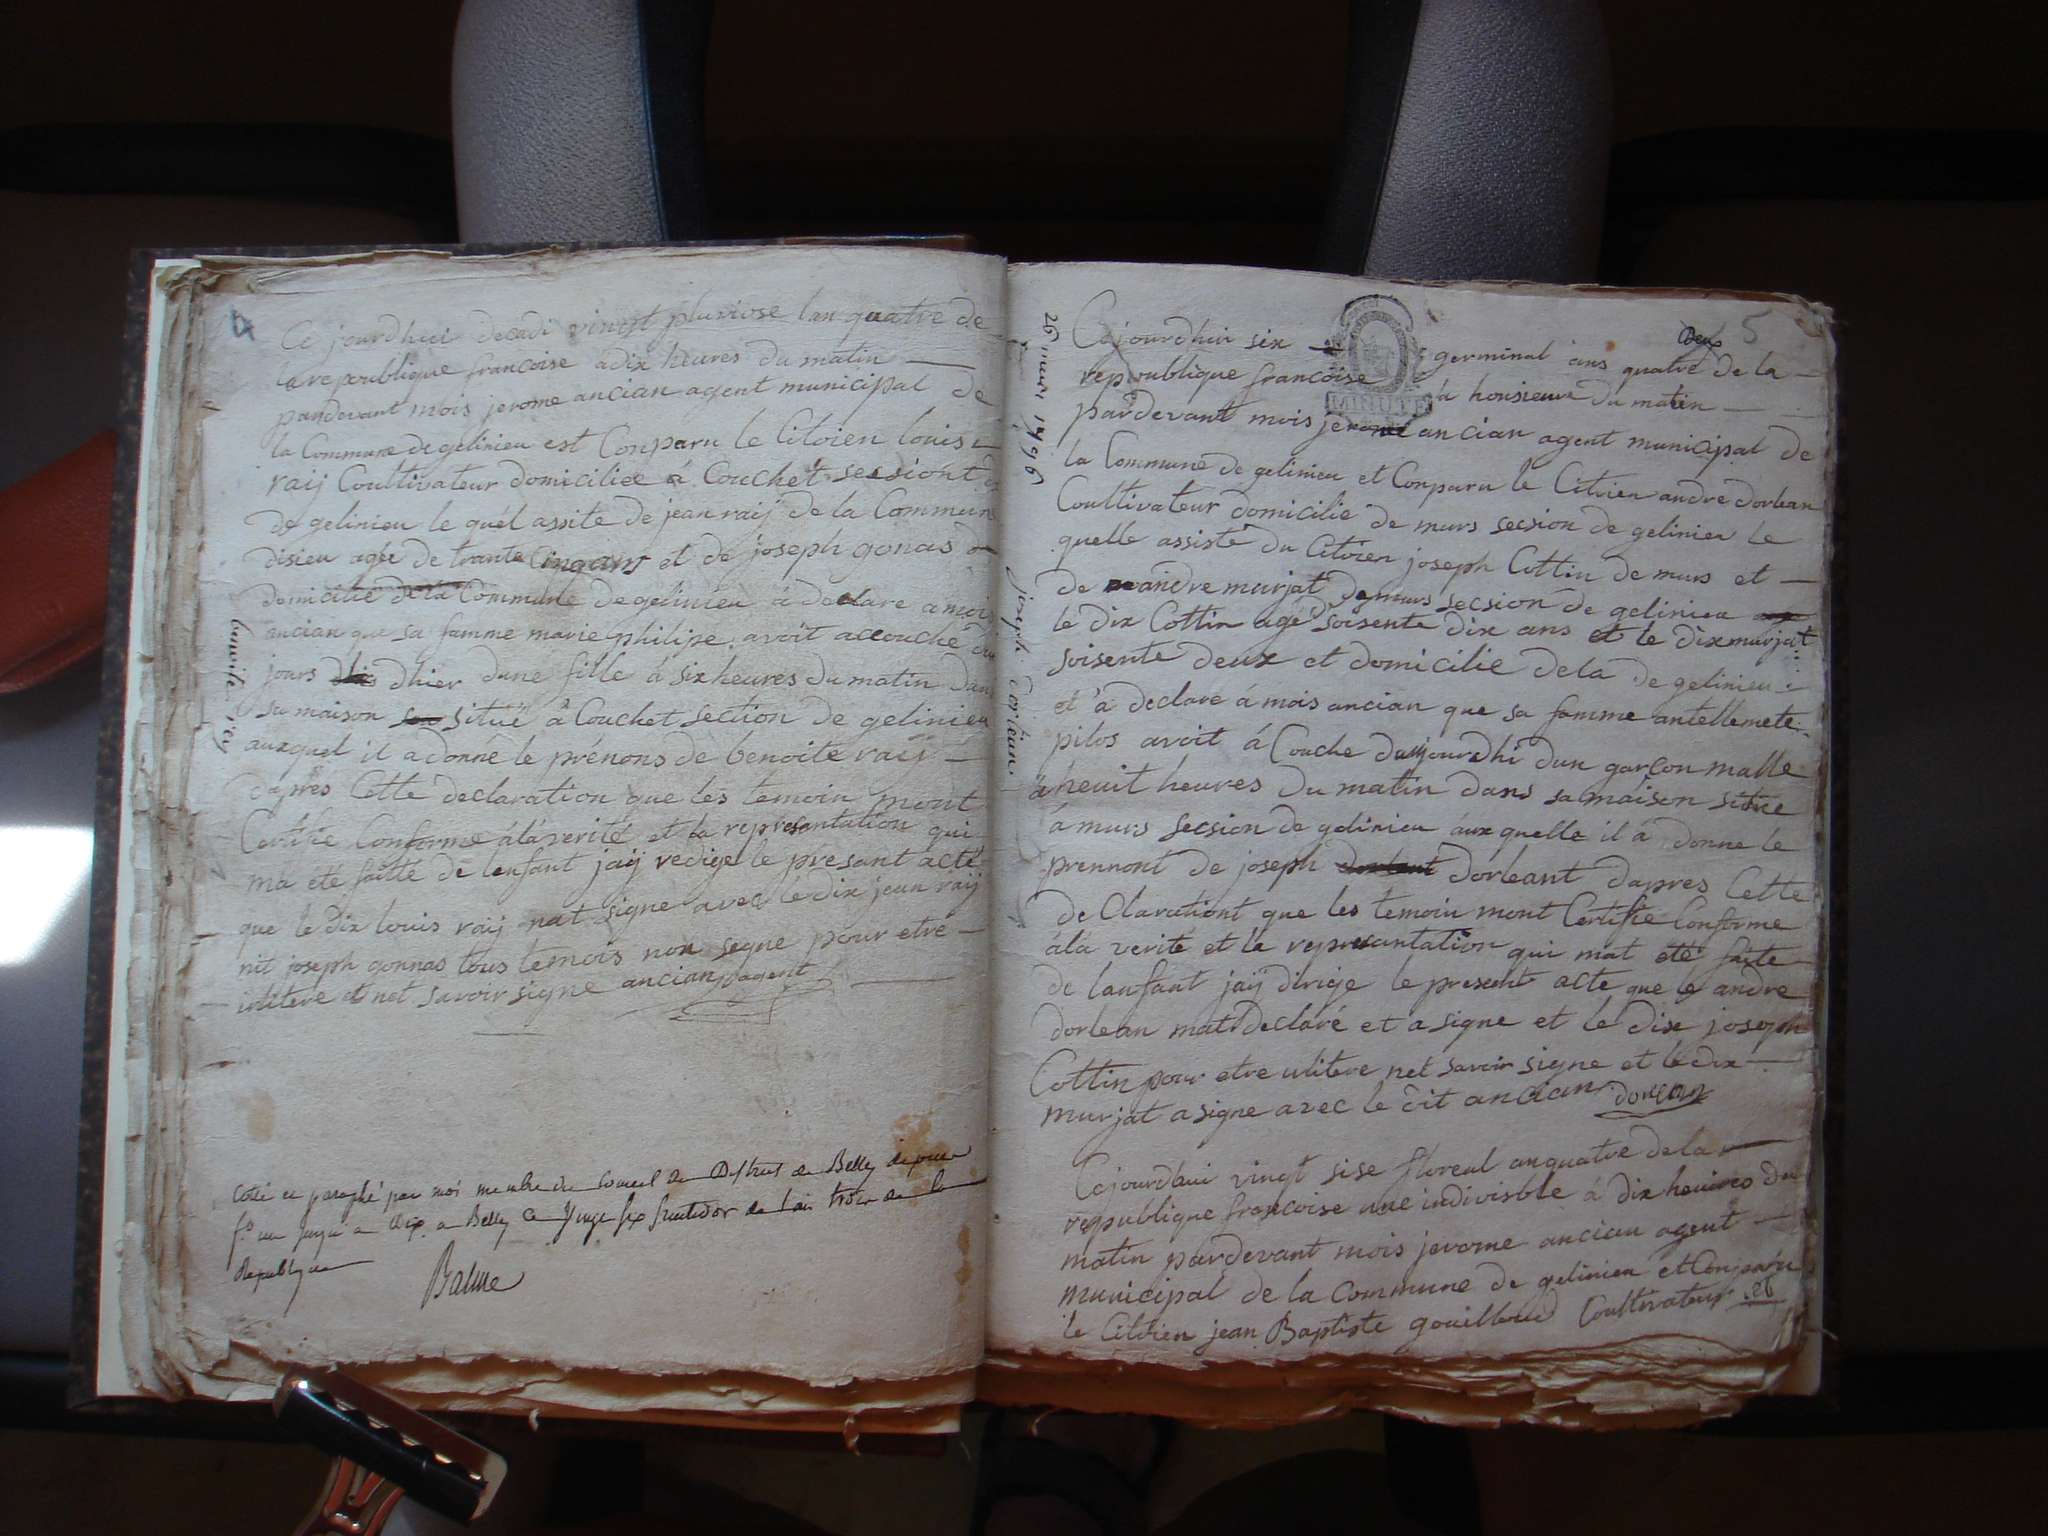 4
Ce jourdhui decadi vingt pluviose lan quatre de
la repoublique francoise a dix heures du matin
pardevant mois jerome ancian agent municipal de
la Commune de gelinieu est Conparu le Citoien louis
raij Coultivateur domiciliee á Couchet sessiont
de gelinieu le quél assite de jean raij de la Commune
disieu agée de trante Cinq ans et de joseph gonas
domicilié de la Commune de gelinieu á declare a moi
ancian que sa famme marie philipe avoit accouché
jours dhier dune fille á six heures du matin dan
sa maison situé á Couchet section de gelinieu
auxquel il a donné le prénons de benoite raij
dáprés Cette declaration que les temoin mont
Certifie Conforme á lá verité et la represantation qui
ma eté faitte de lenfant jaij redige le presant acté
que le dix louis raij nat signe avec le dix jean raij
nit joseph gonnas tous temois non segne pour etre
iulitere et net savoir signe ancian agent
benoite rey
Coté et paraphé par moi membre du Conseil du District de Belley depuis
f.º un jusqu'a dix a Belley Ce fructidor de l'an trois de la
Republique
Balme
Deux 5
MINUTE
Cejourdhui six germinal ans quatre de la
repoublique francoise á honsieure du matin
pardevant mois jerome ancian agent municipal de
la Commune de gelinieu et Conparu le Citoien andré dorlean
Coultivateur domicilie de murs secsion de gelinieu le
quelle assisté du Citoien joseph Cottin de murs et
de andre murjat de murs secsion de gelinieu
le dix Cottin agé soisente dix ans et le dix murjat
soisente deux et domicilie dela de gelinieu
et á declaré á mois ancian que sa famme antellemete
pilos avoit á Couche daujourdhi dun garçon malle
á heuit heures du matin dans sa maison situe
á murs secsion de gelinieu áuxquelle il á donne le
prennont de joseph dorleant dapres Cette
de Clarationt que les temoin mont Certifie Conforme
álá verité et la represantation qui mat eté faite
de lanfant jaij dirige le present acte que le andre
dorlean mat declaré et a signe et le dix joseph
Cottin pour etre ulitere net savoir signe et le dix
murjat a signe avec le dit ancian dorlean
26 mars 1796
joseph dorléans
Cejourdhui vingt sise floreal an quatre dela
republique francoise une indivisble á dix heuires du
matin pardevant mois jerome ancian agent
municipal de la Commune de gelinieu et Conparu
le Citoien jean Baptiste gouilloud Coultivateur